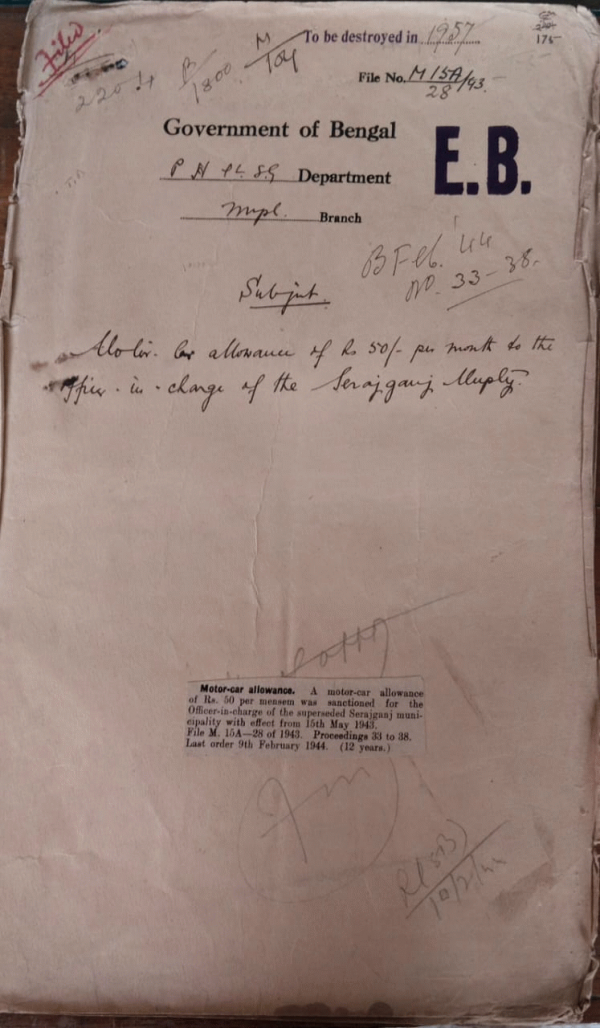 Filed
To be destroyed in 1957
175
2204
B/1800
M/104
File No. M 15A/28/43.
Government of Bengal
E.B.
P H & L. S. G Department
Mupl. Branch
B Feb. '44
No. 33-38.
Subject.
Motor-Car allowance of Rs 50/- per month to the
officer-in-charge of the Serajganj Muply.
Motor-car allowance. A motor-car allowance
of Rs. 50 per mensem was sanctioned for the
Officer-in-charge of the superseded Serajganj muni-
cipality with effect from 15th May 1943.
File M. 15A—28 of 1943. Proceedings 33 to 38.
Last order 9th February 1944. (12 years.)